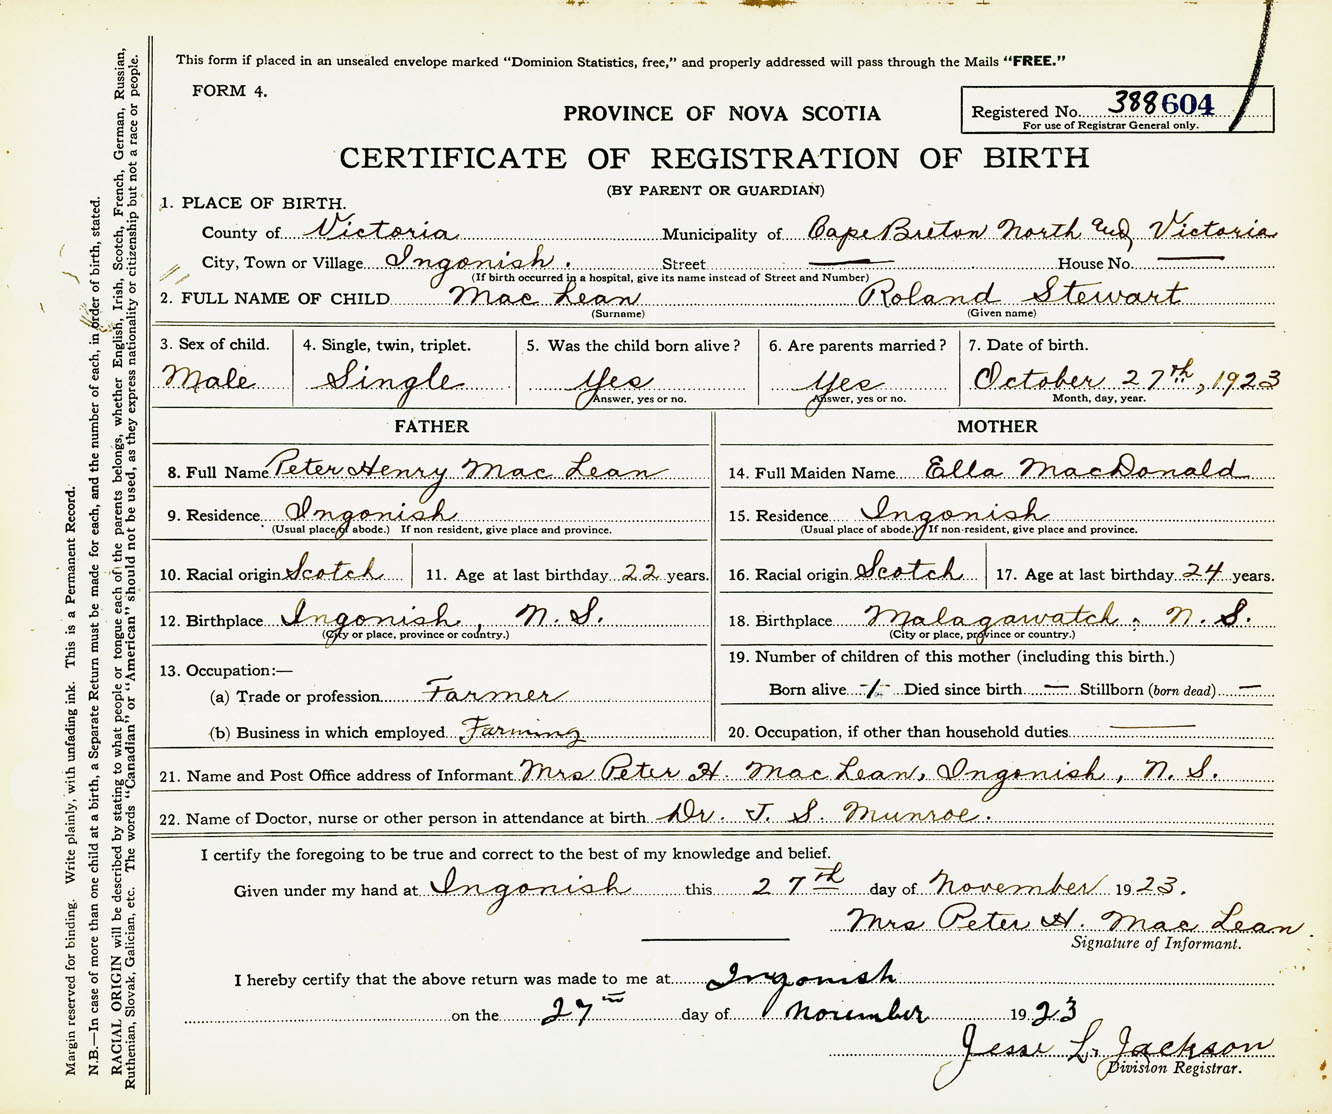 This form if placed in an unsealed envelope marked "Dominion Statistics, free," and properly addressed will pass through the Mails "FREE."
FORM 4.
PROVINCE OF NOVA SCOTIA
Registered No. 388604
For use of Registrar General only.
CERTIFICATE OF REGISTRATION OF BIRTH
(BY PARENT OR GUARDIAN)
1. PLACE OF BIRTH.
County of Victoria Municipality of Cape Breton North and Victoria
City, Town or Village Ingonish. Street — House No. —
(If birth occurred in a hospital, give its name instead of Street and Number)
2. FULL NAME OF CHILD Mac Lean Roland Stewart
(Surname) (Given name)
3. Sex of child. 4. Single, twin, triplet. 5. Was the child born alive? 6. Are parents married? 7. Date of birth.
Male Single Yes Yes October 27th, 1923
Answer, yes or no. Answer, yes or no. Month, day, year.
FATHER MOTHER
8. Full Name Peter Henry Mac Lean 14. Full Maiden Name Ella MacDonald
9. Residence Ingonish 15. Residence Ingonish
(Usual place of abode.) If non resident, give place and province. (Usual place of abode.) If non-resident, give place and province.
10. Racial origin Scotch 11. Age at last birthday 22 years. 16. Racial origin Scotch 17. Age at last birthday 24 years.
12. Birthplace Ingonish, N. S. 18. Birthplace Malagawatch. N. S.
(City or place, province or country.) (City or place, province or country.)
13. Occupation:— 19. Number of children of this mother (including this birth.)
(a) Trade or profession Farmer Born alive -1- Died since birth — Stillborn (born dead) —
(b) Business in which employed Farming 20. Occupation, if other than household duties —
21. Name and Post Office address of Informant Mrs Peter H. Mac Lean, Ingonish, N. S.
22. Name of Doctor, nurse or other person in attendance at birth Dr. J. S. Munroe.
I certify the foregoing to be true and correct to the best of my knowledge and belief.
Given under my hand at Ingonish this 27th day of November 1923.
Mrs Peter H. Mac Lean.
Signature of Informant.
I hereby certify that the above return was made to me at Ingonish
on the 27th day of November 1923
Jesse L. Jackson
Division Registrar.
Margin reserved for binding. Write plainly, with unfading ink. This is a Permanent Record.
N.B.—In case of more than one child at a birth, a Separate Return must be made for each, and the number of each, in order of birth, stated.
RACIAL ORIGIN will be described by stating to what people or tongue each of the parents belongs, whether English, Irish, Scotch, French, German, Russian,
Ruthenian, Slovak, Galician, etc. The words "Canadian" or "American" should not be used, as they express nationality or citizenship but not a race or people.